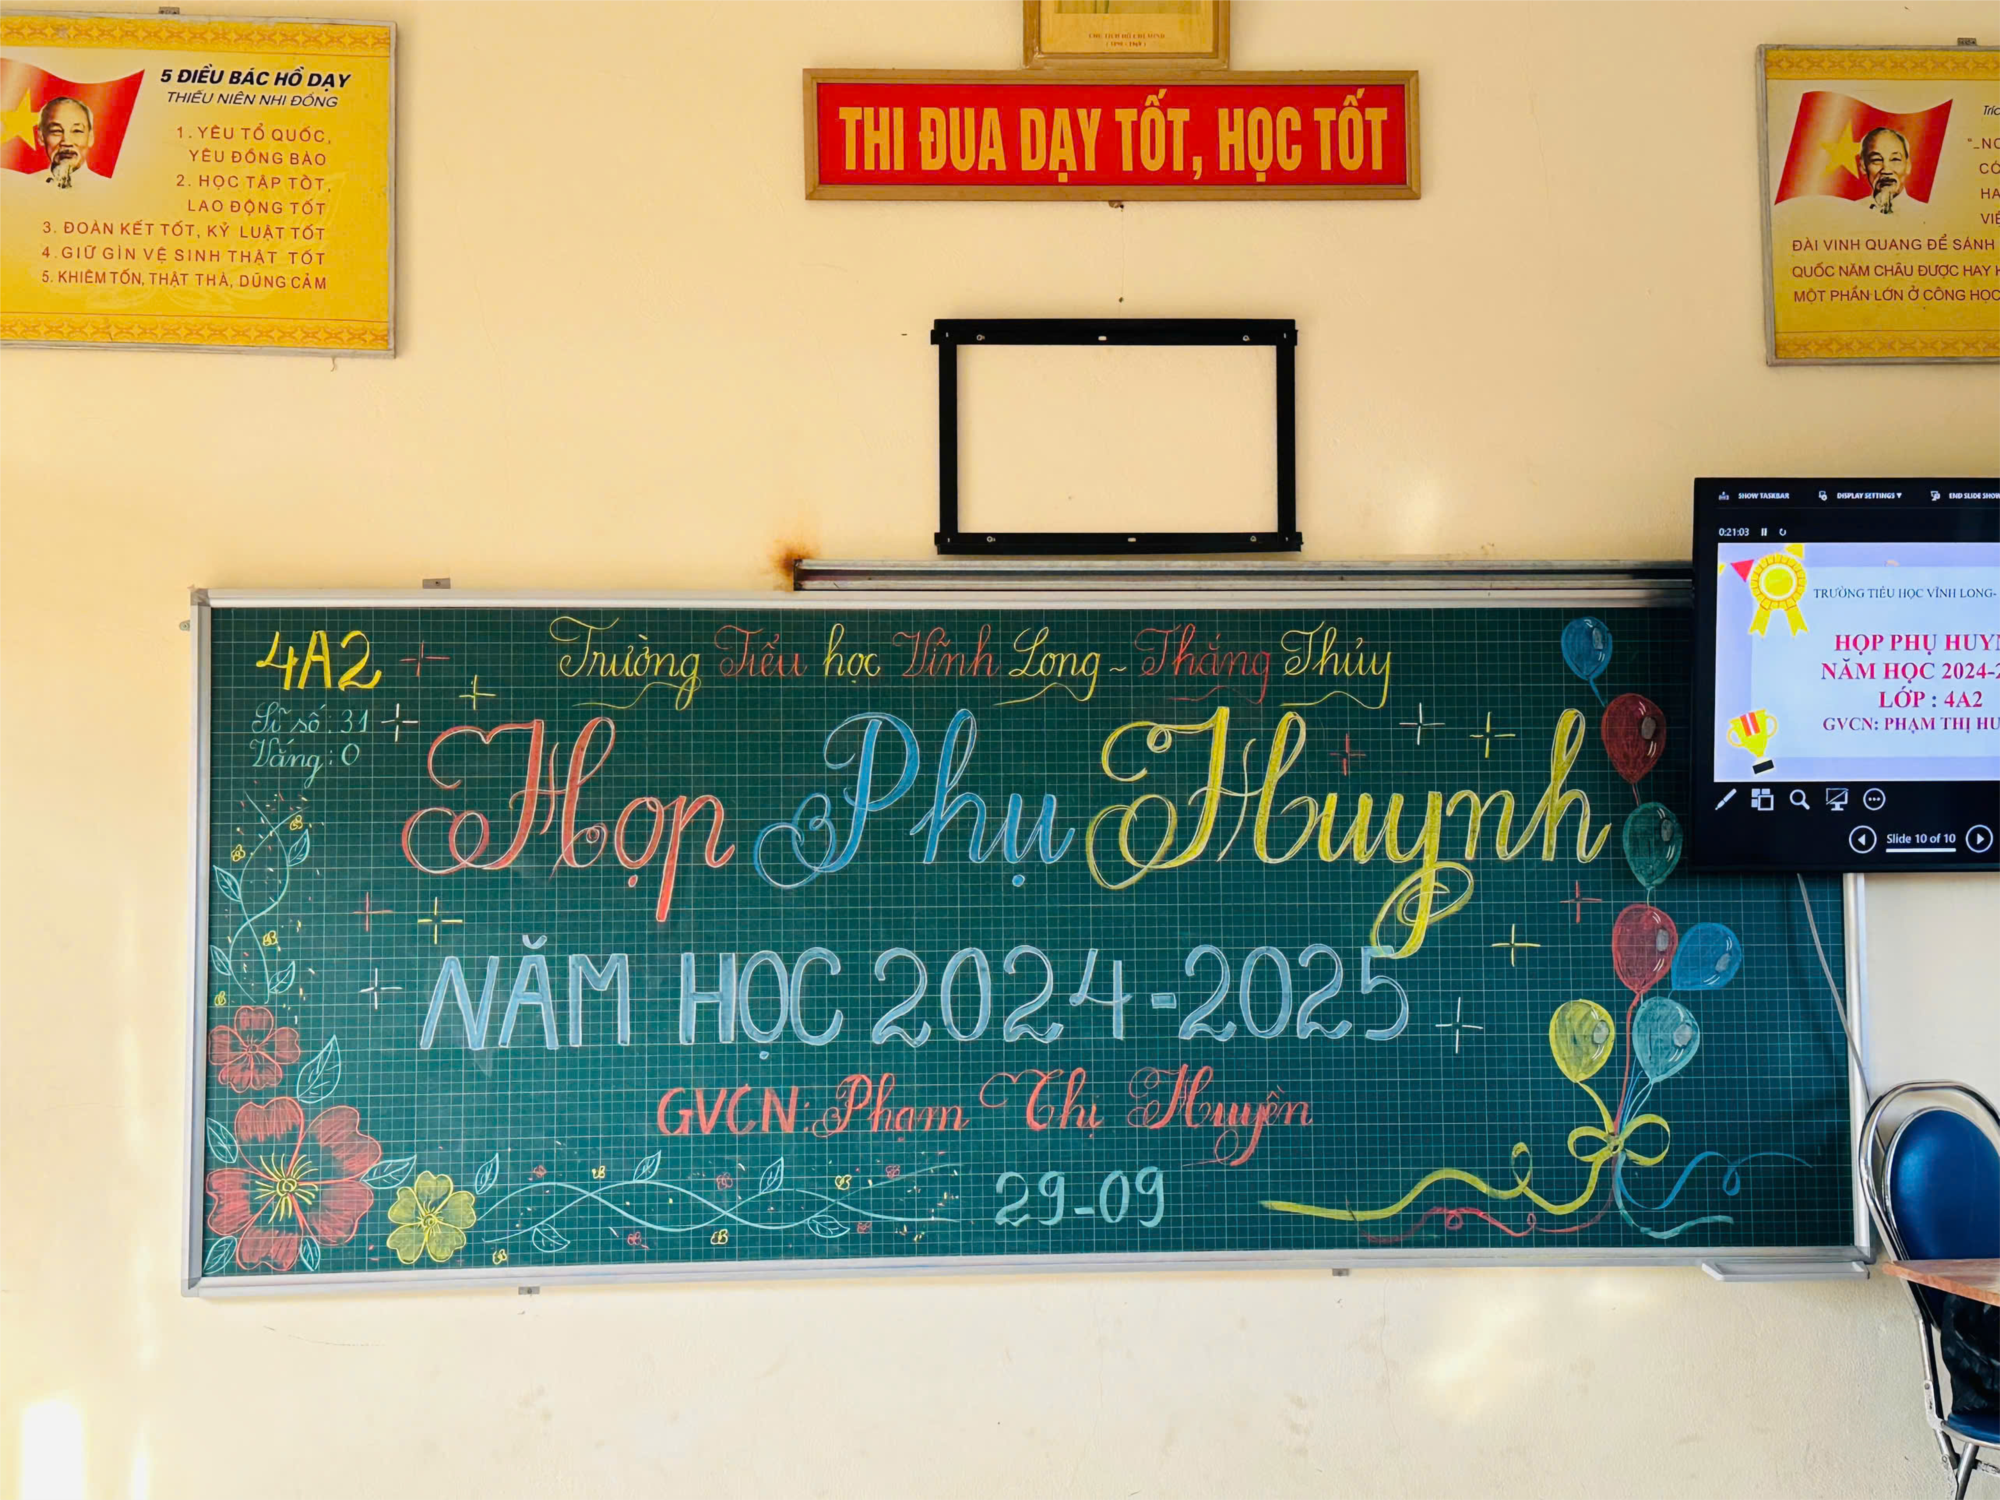 CHỦ TỊCH HỒ CHÍ MINH
( 1890 - 1969 )
THI ĐUA DẠY TỐT, HỌC TỐT
5 ĐIỀU BÁC HỒ DẠY
THIẾU NIÊN NHI ĐỒNG
1. YÊU TỔ QUỐC,
YÊU ĐỒNG BÀO
2. HỌC TẬP TỐT,
LAO ĐỘNG TỐT
3. ĐOÀN KẾT TỐT, KỶ LUẬT TỐT
4. GIỮ GÌN VỆ SINH THẬT TỐT
5. KHIÊM TỐN, THẬT THÀ, DŨNG CẢM
ĐÀI VINH QUANG ĐỂ SÁNH
QUỐC NĂM CHÂU ĐƯỢC HAY
MỘT PHẦN LỚN Ở CÔNG HỌC
SHOW TASKBAR DISPLAY SETTINGS ▼ END SLIDE SHOW
0:21:03
TRƯỜNG TIỂU HỌC VĨNH LONG-
HỌP PHỤ
NĂM HỌC 2024-
LỚP : 4A2
GVCN: PHẠM THỊ
Slide 10 of 10
4A2
Trường Tiểu học Vĩnh Long - Thắng Thủy
Sĩ số: 31
Vắng: 0
Họp Phụ Huynh
NĂM HỌC 2024-2025
GVCN: Phạm Thị Huyền
29-09